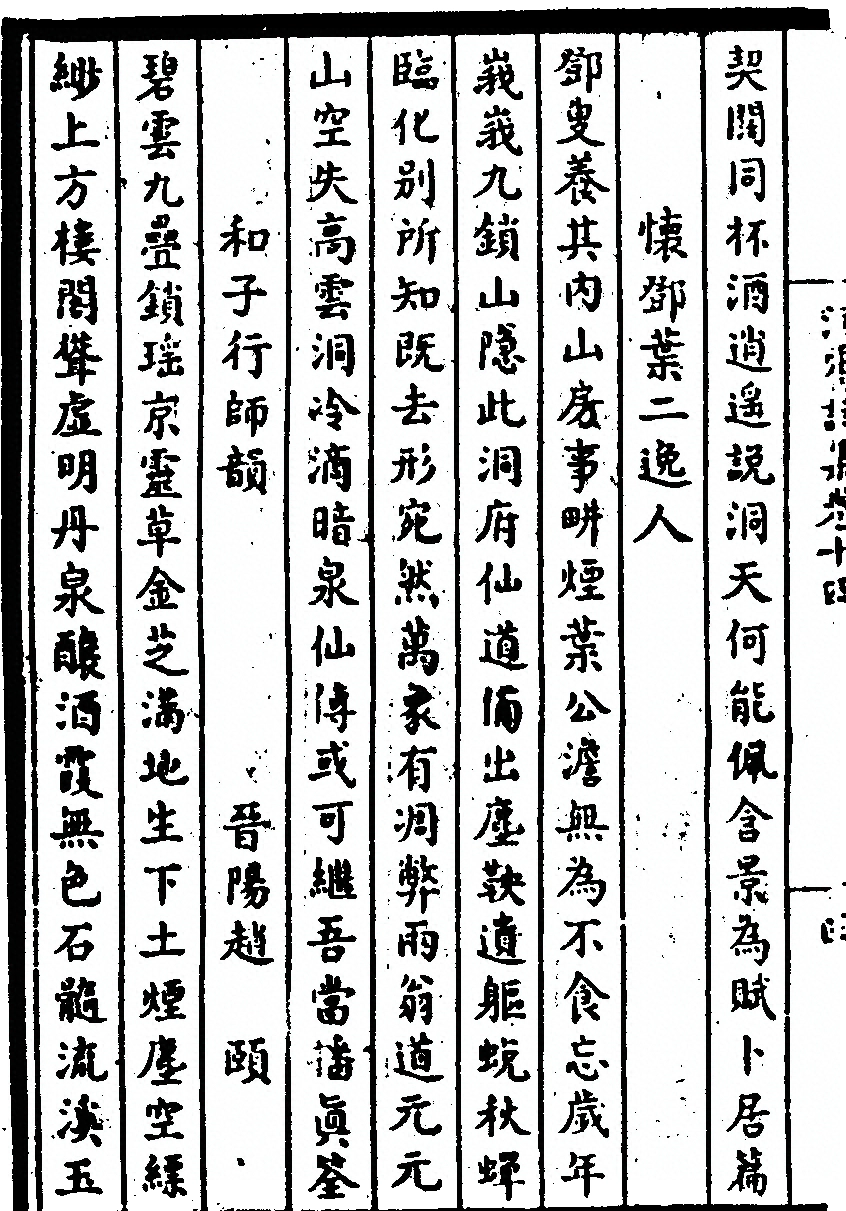 契闊同杯酒逍遥說洞天何能佩含景為賦卜居篇
懷鄧葉二逸人
鄧叟養其內山房事畊煙葉公澹無為不食忘歲年
峩峩九鎖山隱此洞府仙道偹出塵鞅遺軀蛻秋蟬
臨化别所知既去形宛然萬彙有凋弊兩翁道元元
山空失高雲洞冷滴暗泉仙傳或可繼吾當譒眞筌
和子行師韻 晉陽趙 頤
碧雲九疊鎖瑶京靈草金芝滿地生下土煙塵空縹
緲上方樓閣聳虛明丹泉釀酒霞無色石髓流溪玉